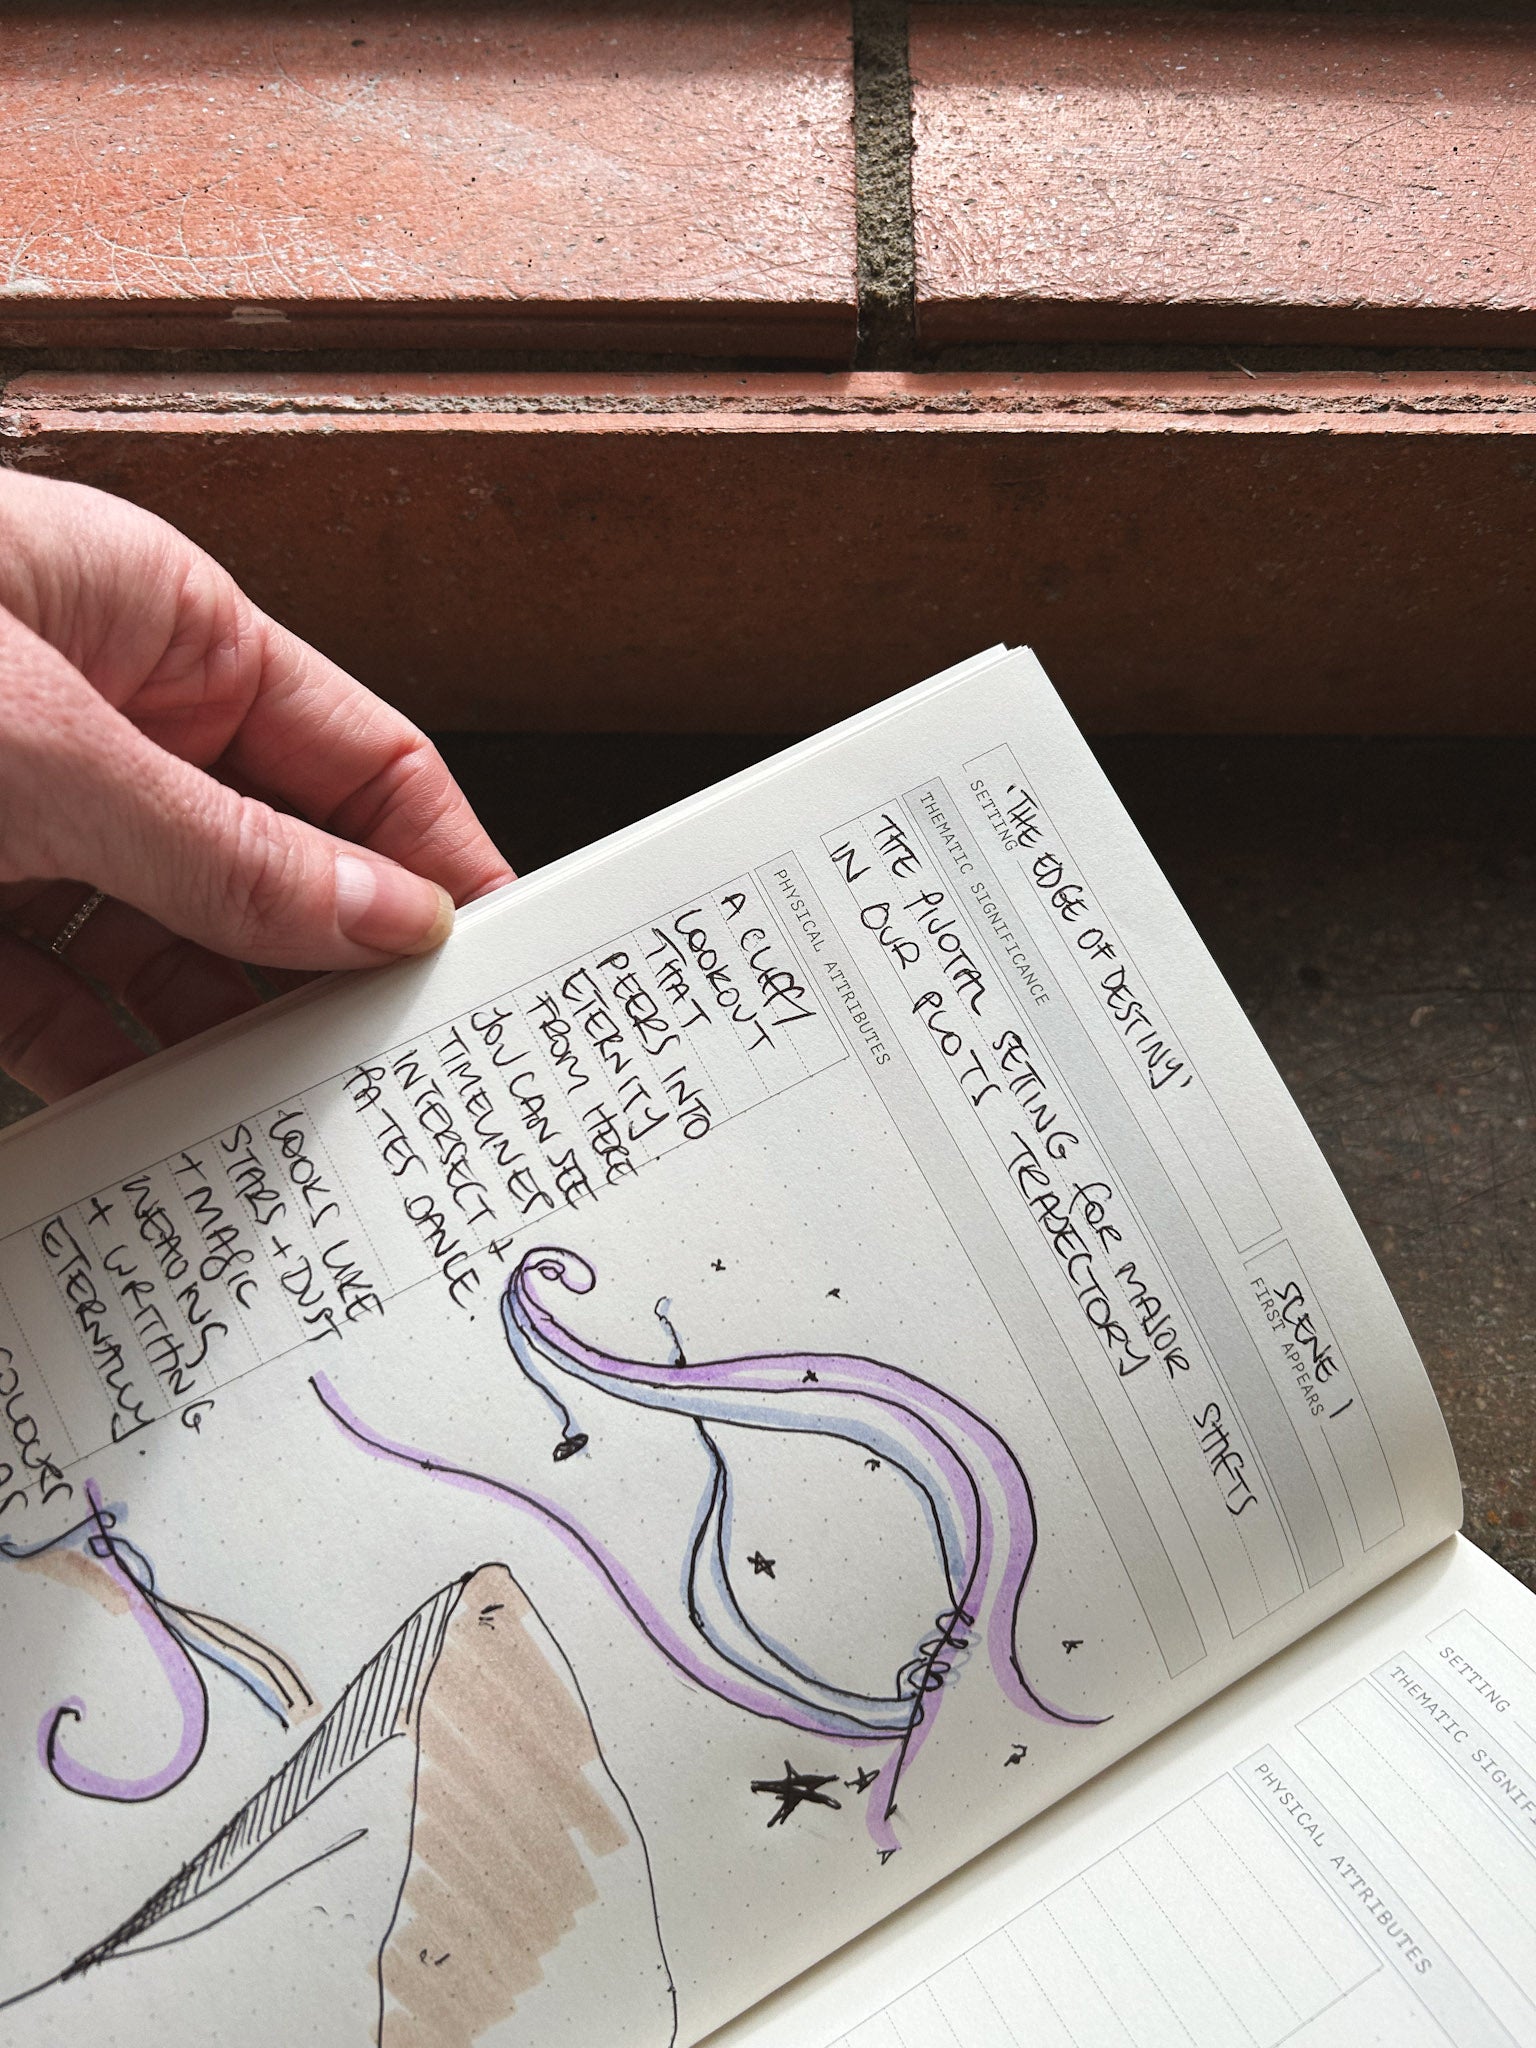 'THE EDGE OF DESTINY'
SETTING
SCENE 1
FIRST APPEARS
THEMATIC SIGNIFICANCE
THE PIVOTAL SETTING FOR MAJOR SHIFTS
IN OUR PLOTS TRAJECTORY
PHYSICAL ATTRIBUTES
A CLIFFY
LOOKOUT
THAT
PEERS INTO
ETERNITY.
FROM HERE
YOU CAN SEE
TIMELINES
INTERSECT +
FATES DANCE.
LOOKS LIKE
STARS + DUST
+ MAGIC
WEAVING
+ WRITHING
ETERNALLY.
COLOURS
AS
SETTING
THEMATIC SIGNIF
PHYSICAL ATTRIBUTES